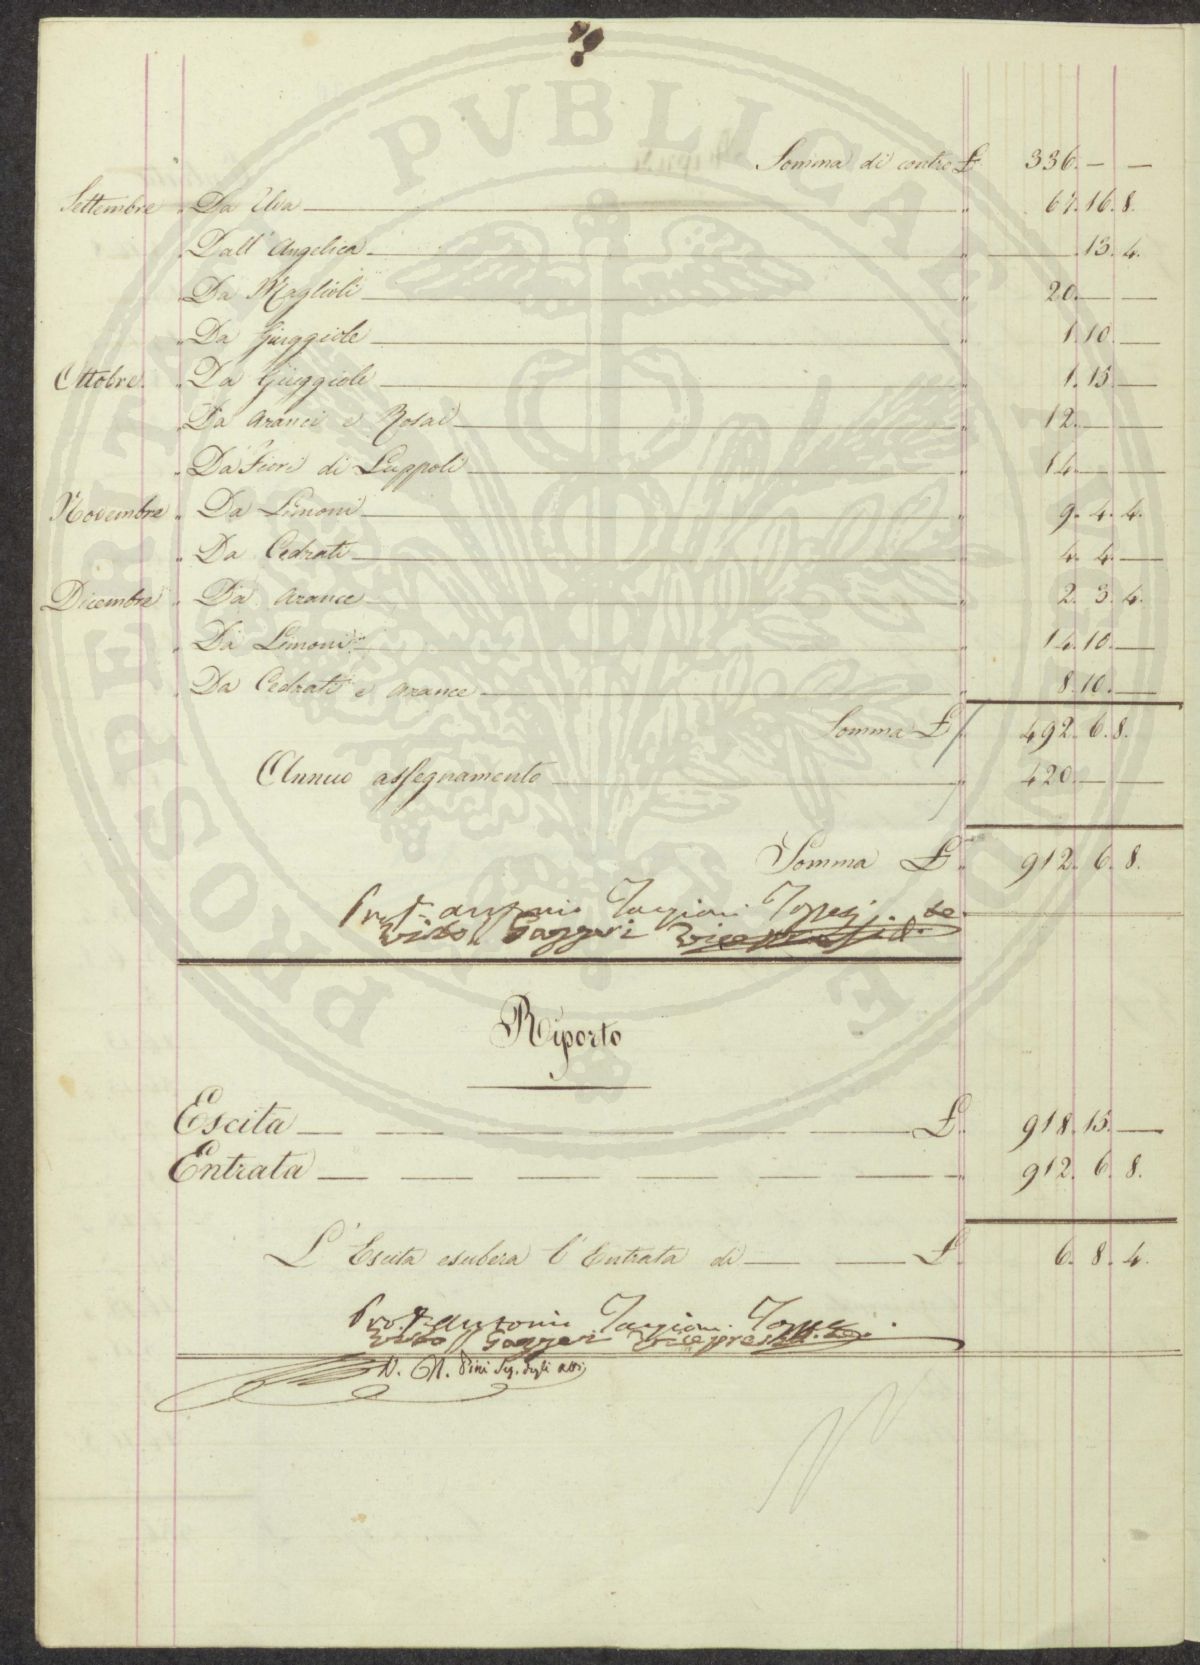 Somma di contro £ 336. — —
Settembre " Da Uva " 67. 16. 8.
" Dall' Angelica " — 13. 4.
" Da Maglioli " 20. — —
" Da Giuggiole 1. 10. —
Ottobre. " Da Giuggiole " 1. 15. —
" Da Aranci e Rosai " 12. — —
" Da Fiori di Luppoli " 14. — —
Novembre " Da Limoni " 9. 4. 4.
" Da Cedrati " 4. 4. —
Dicembre " Da Arance " 2. 3. 4.
" Da Limoni " 14. 10. —
" Da Cedrati e Arance " 8. 10. —
Somma £ 492. 6. 8.
Annuo assegnamento " 420. — —
Somma £ 912. 6. 8.
Prof. Antonio Targioni Tozzetti
Visto Gazzeri Vicepresid.te
Riporto
Escita £ 918. 15. —
Entrata " 912. 6. 8.
L'Escita esubera l'Entrata di £ 6. 8. 4.
Prof. Antonio Targioni Tozz.
Visto Gazzeri Vicepresid.te
Pini Seg. degli atti
PROSPERITATI PUBLICAE AUGENDAE